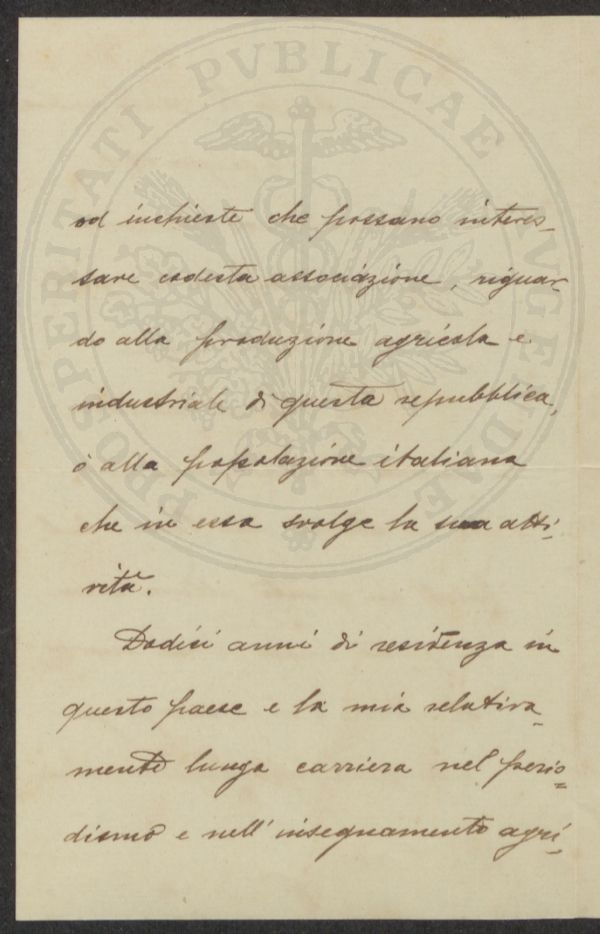 PROSPERITATI PVBLICAE AVGENDAE
od inchieste che possano interes-
sare codesta associazione, riguar-
do alla produzione agricola e
industriale di questa repubblica,
o alla popolazione italiana
che in essa svolge la sua atti-
vità.
Dodici anni di residenza in
questo paese e la mia relativa-
mente lunga carriera nel perio-
dismo e nell'insegnamento agri-